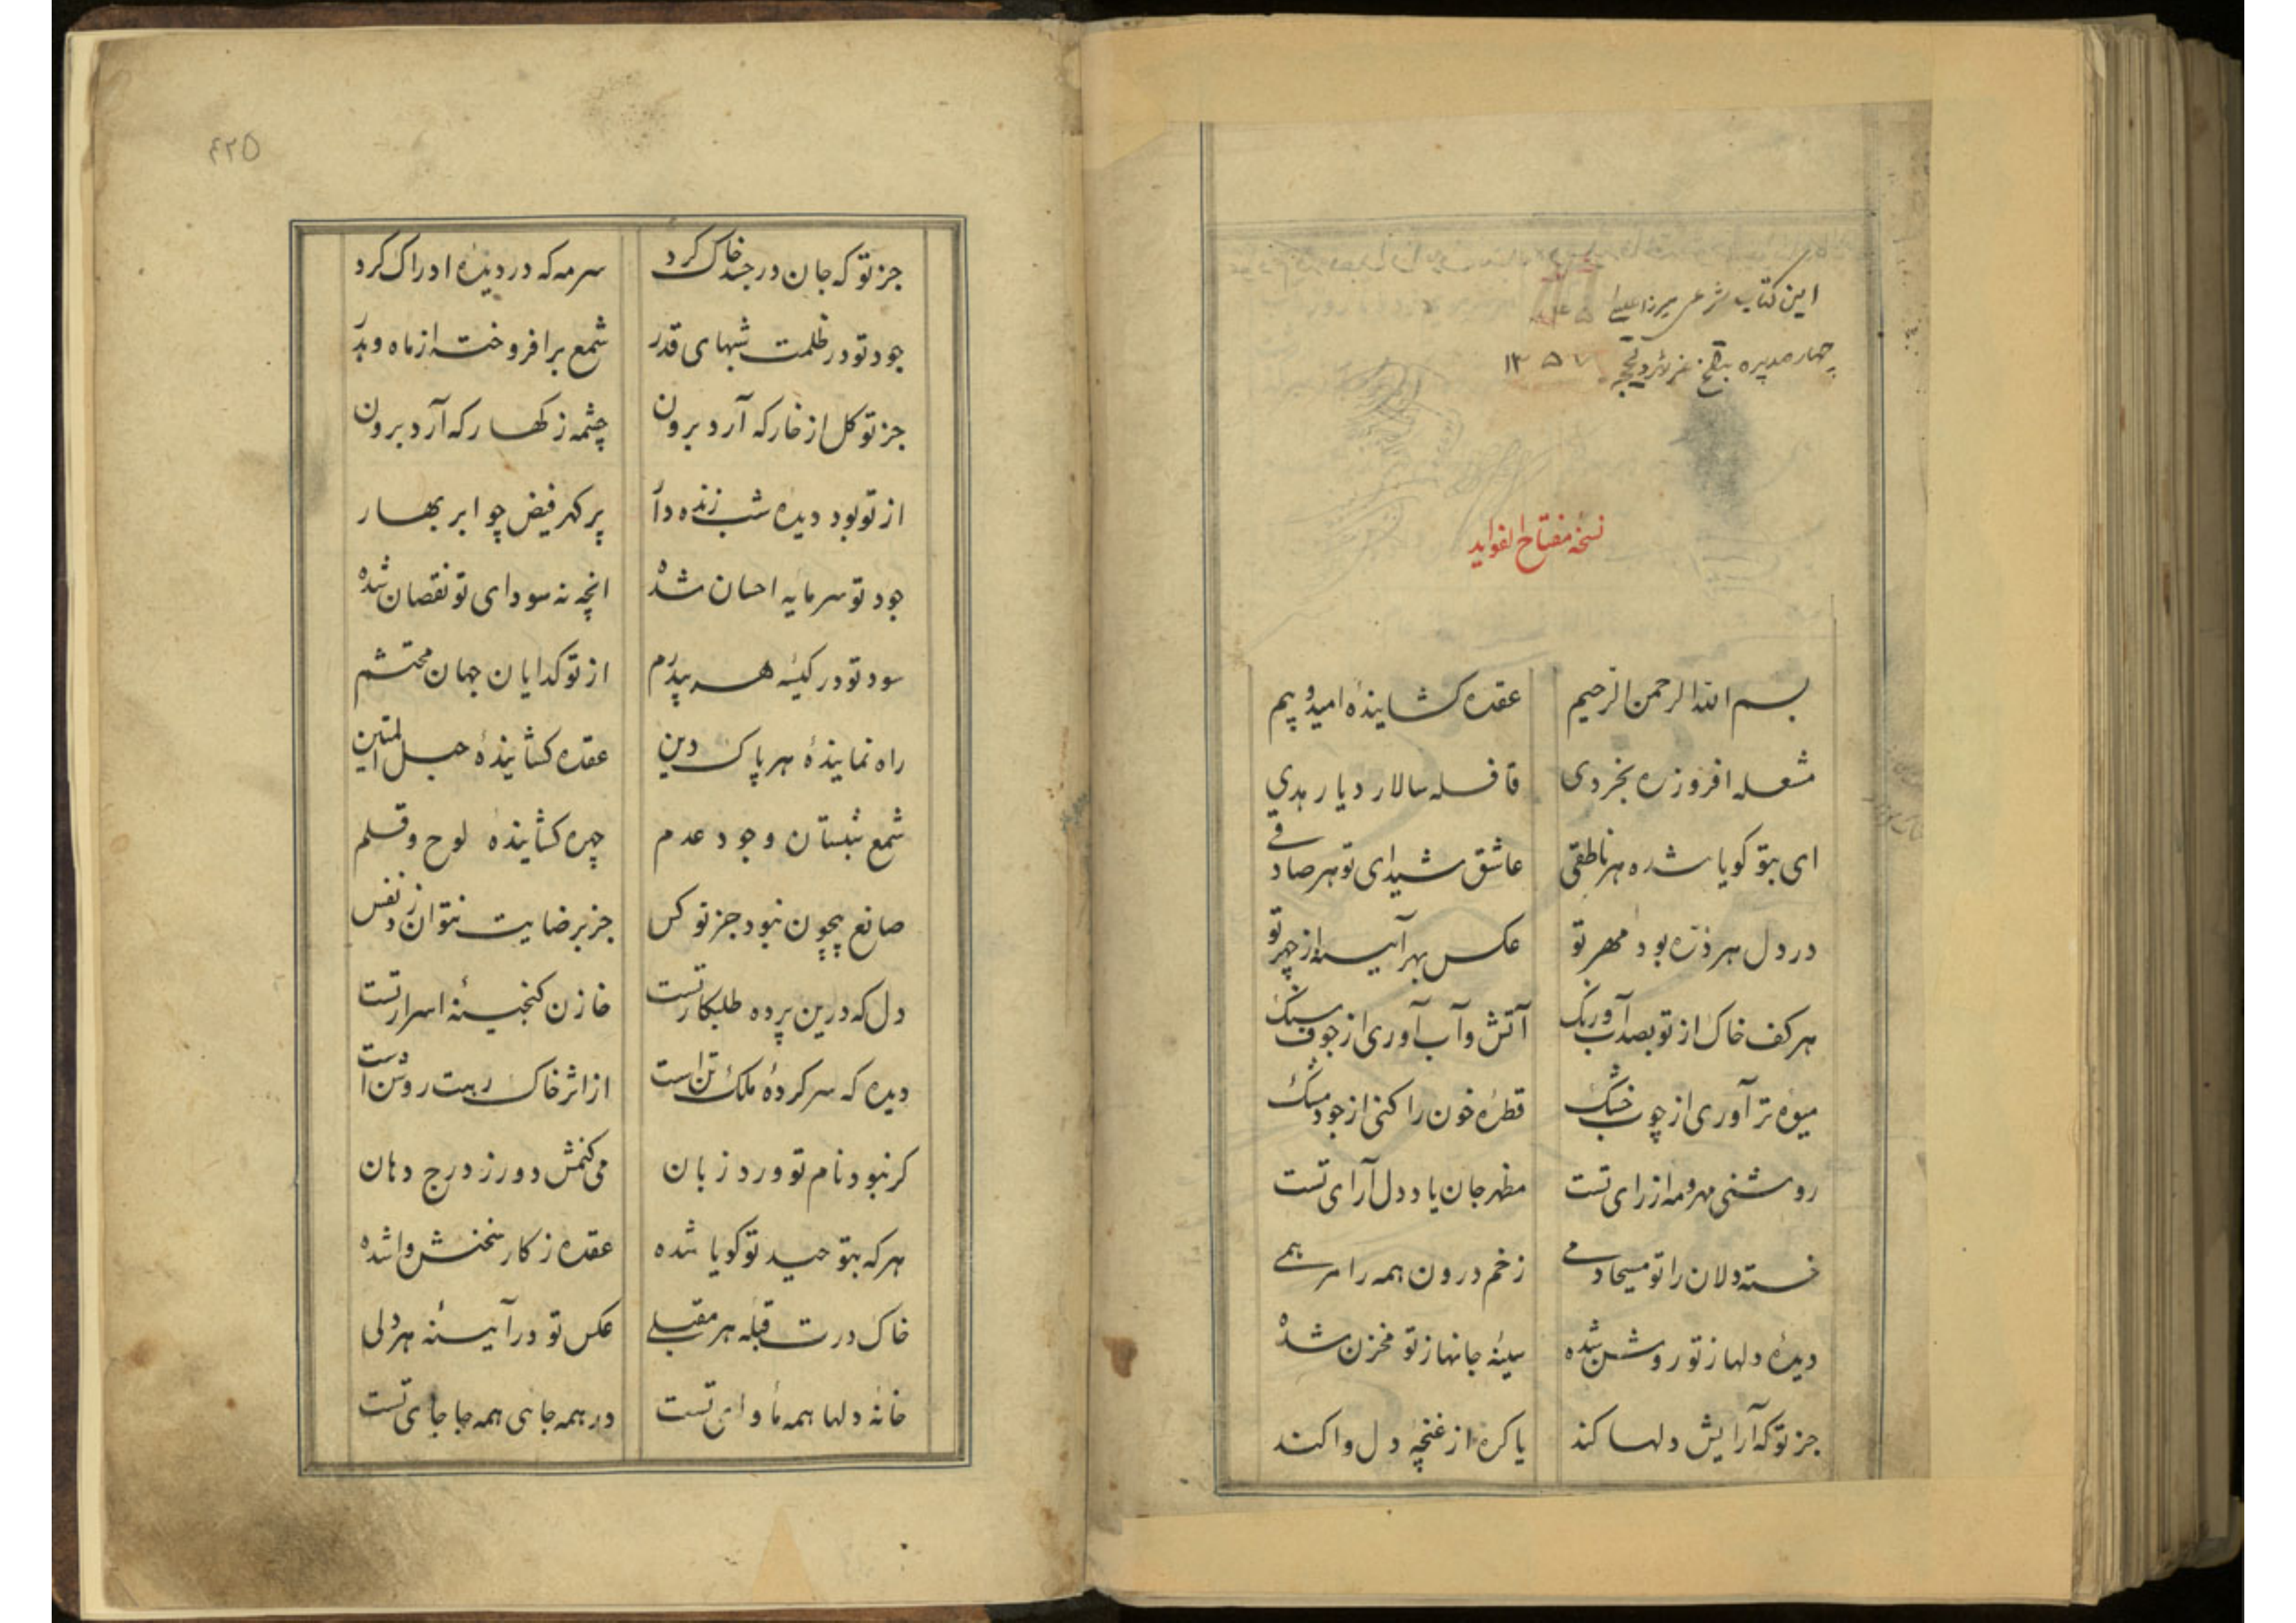 این کتاب شرعی میرزا علی
۱۳۵۷
نسخه مفتاح الفواید
بسم الله الرحمن الرحیم عقده کشاینده امید و بیم
مشعله افروز ره بخردی قافله سالار دیار هدی
ای بتو کویا شده هر ناطقی عاشق شیدای تو هر صادقی
در دل هر ذره بود مهر تو عکس بهر آینه از چهر تو
هر کف خاک از تو بصد آب و رنک آتش و آب آوری از جوف سنک
میوه تر آوری از چوب خشک قطره خون را کنی از جود مشک
روشنی مهر و مه از رای تست مظهر جان یاد دل آرای تست
خسته دلان را تو مسیحا دمی زخم درون همه را مرهمی
دیده دلها ز تو روشن شده سینه جانها ز تو مخزن شده
جز تو که آرایش دلها کند یا کره از غنچه دل وا کند
۴۲۵
جز تو که جان در جسد خاک کرد سرمه که در دیده ادراک کرد
جود تو در ظلمت شبهای قدر شمع برافروخته از ماه و بدر
جز تو کل از خار که آرد برون چشمه ز کهسار که آرد برون
از تو بود دیده شب زنده دار پر کهر فیض چو ابر بهار
جود تو سرمایه احسان شده انچه نه سودای تو نقصان شده
سود تو در کیسه هر بیدرم از تو کدایان جهان محتشم
راه نماینده هر پاک دین عقده کشاینده حبل المتین
شمع شبستان وجود عدم چهره کشاینده لوح و قلم
صانع بیچون نبود جز تو کس جز برضایت نتوان زد نفس
دل که درین پرده طلبکار تست خازن کنجینه اسرار تست
دیده که سرکرده ملک تن است از اثر خاک رهت روشن است
کر نبود نام تو ورد زبان می کنمش دور ز درج دهان
هر که بتوحید تو کویا شده عقده ز کار سخنش وا شده
خاک درت قبله هر مقبلی عکس تو در آینه هر دلی
خانه دلها همه ماوای تست در همه جا هی همه جا جای تست